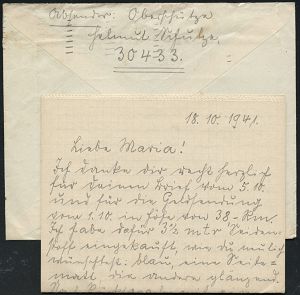 Absender: Oberschütze
Helmut
30433.
18.10.1941.
Liebe Maria!
Ich danke dir recht herzlich
für deinen Brief vom 5.10.
und für die Geldsendung
vom 1.10. in Höhe von 38-Rm.
Ich habe dafür 3½ mtr Seiden-
stoff eingekauft, wie du neulich
wünschtest: blau, eine Seite
matt, die andere glänzend.